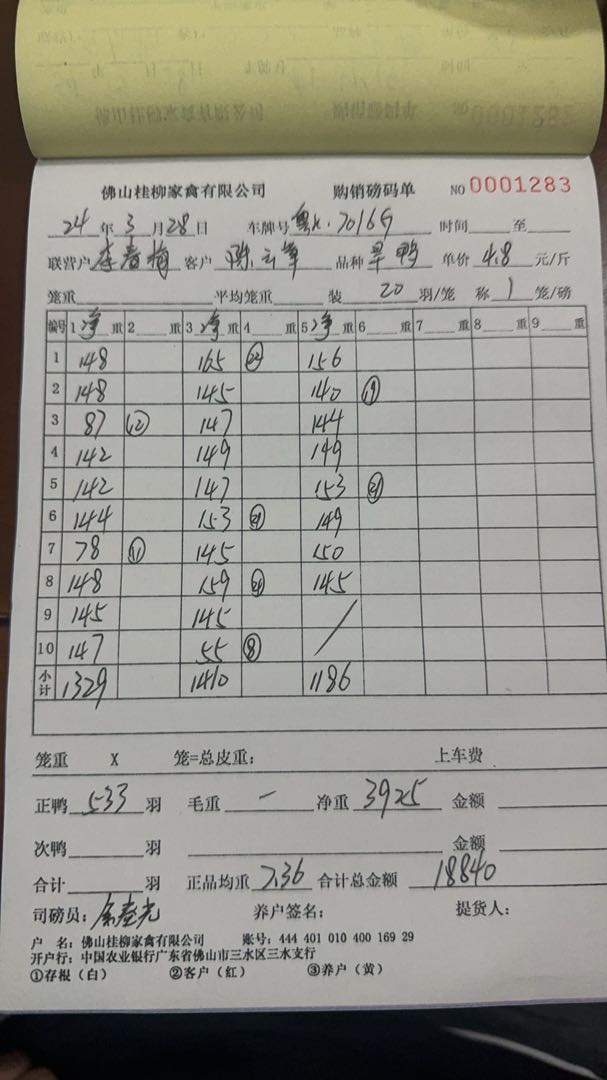 0001282
佛山桂柳家禽有限公司 购销磅码单 NO 0001283
24 年 3 月 28 日 车牌号 粤X·70169 时间 至
联营户 李春梅 客户 陈 品种 旱鸭 单价 4.8 元/斤
笼重 平均笼重 装 20 羽/笼 称 1 笼/磅
编号 1 净 重 2 重 3 净 重 4 重 5 净 重 6 重 7 重 8 重 9 重
1 148 165 156
2 148 145 140 ⑲
3 87 ⑫ 147 144
4 142 149 149
5 142 147 153 ㉑
6 144 153 ㉑ 149
7 78 ⑪ 145 150
8 148 159 145
9 145 145 /
10 147 55 ⑧
小计 1329 1410 1186
笼重 X 笼=总皮重: 上车费
正鸭 533 羽 毛重 — 净重 3925 金额
次鸭 羽 金额
合计 羽 正品均重 7.36 合计总金额 18840
司磅员: 养户签名: 提货人:
户 名: 佛山桂柳家禽有限公司 账号: 444 401 010 400 169 29
开户行: 中国农业银行广东省佛山市三水区三水支行
①存根（白） ②客户（红） ③养户（黄）